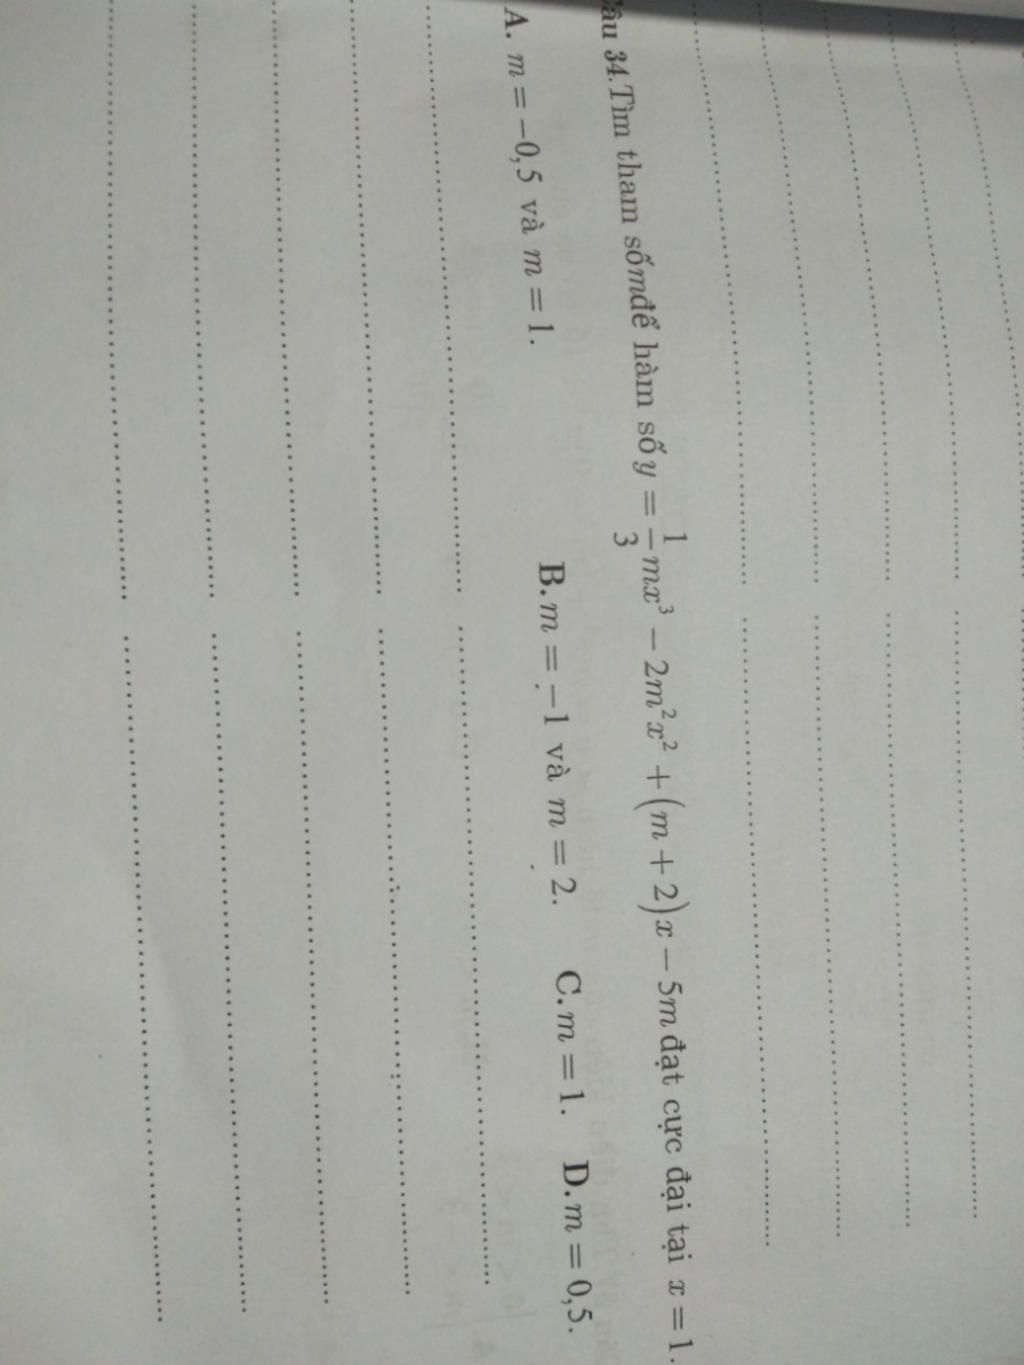 Câu 34.Tìm tham số m để hàm số y = \frac{1}{3}mx³ − 2m²x² + (m + 2)x − 5m đạt cực đại tại x = 1.
A. m = −0,5 và m = 1. B. m = −1 và m = 2. C. m = 1. D. m = 0,5.